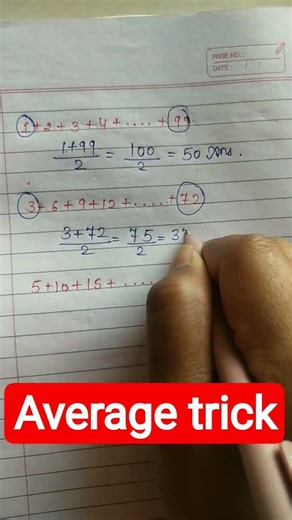 PAGE NO.:
DATE: / /
1+2+3+4+.....+99
1+99/2 = 100/2 = 50 Ans.
3+6+9+12+.....+72
3+72/2 = 75/2 = 3
5+10+15+.....
Average trick